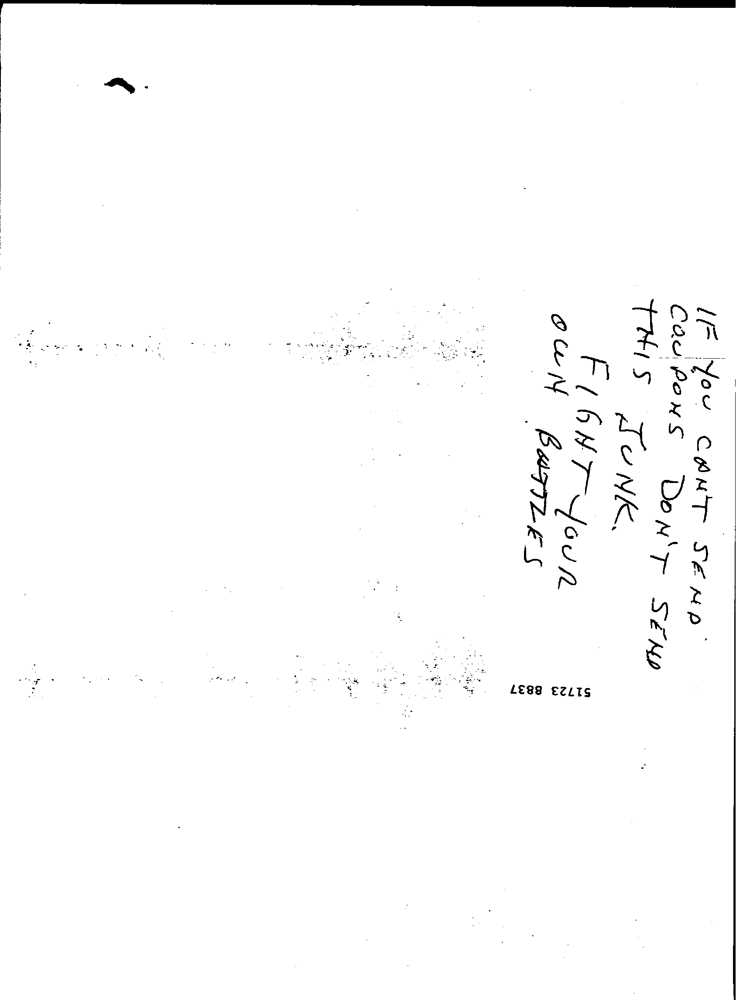 IF YOU CANT SEND
COUPONS DON'T SEND
THIS JUNK.
FIGHT YOUR
OWN BATTLES
51723 8837